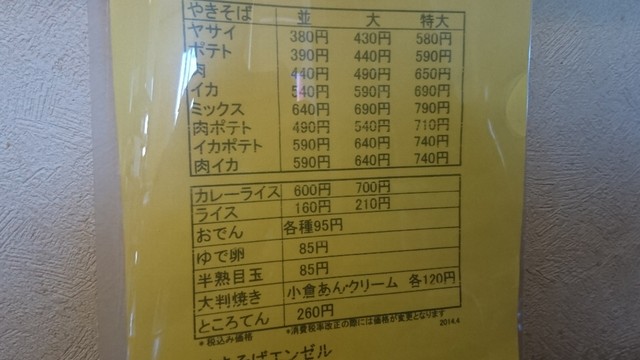 やきそば 並 大 特大
ヤサイ 380円 430円 580円
ポテト 390円 440円 590円
肉 440円 490円 650円
イカ 540円 590円 690円
ミックス 640円 690円 790円
肉ポテト 490円 540円 710円
イカポテト 590円 640円 740円
肉イカ 590円 640円 740円
カレーライス 600円 700円
ライス 160円 210円
おでん 各種95円
ゆで卵 85円
半熟目玉 85円
大判焼き 小倉あん・クリーム 各120円
ところてん 260円
*税込み価格 *消費税率改正の際には価格が変更となります
2014.4
そばエンゼル